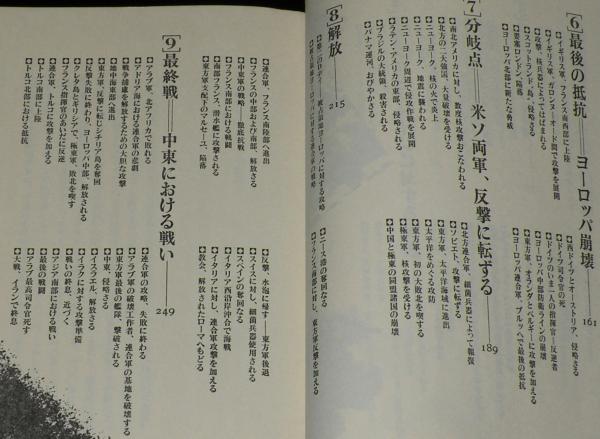 [6] 最後の抵抗――ヨーロッパ崩壊
161
イギリス軍、フランス南西部に上陸
イギリス軍、ガロンヌ―オード間で攻撃を展開
攻撃、核兵器によってはばまれる
スコットランド、島、侵略さる
要塞ロンドンの悲鳴
ヨーロッパ北部に新たな脅威
西ドイツとオーストリア、侵略さる
ドイツ司令官の死
ドイツのいま一人の指揮官―反逆者
ヨーロッパ中部防衛ラインの崩壊
東方軍、オランダとベルギーに攻撃を加える
ヨーロッパ連合軍、ブルッヘで最後の抵抗
[7] 分岐点――米ソ両軍、反撃に転ずる
189
南北アメリカに対し、数度核攻撃おこなわれる
北方の二大強国、大量破壊を受ける
ニューヨーク、核の火で炎上
ニューヨーク、地震に襲われる
ニューヨーク周辺で侵攻作戦を展開
ラテン・アメリカの東部、侵略される
ブラジルの大統領、殺害される
パナマ運河、おびやかさる
北方連合軍、細菌兵器によって報復
ソビエト、攻撃に転ずる
東方軍、太平洋海域に進出
太平洋をめぐる攻防
東方軍、初の大敗北を喫する
極東軍、核攻撃を受ける
中国と極東の同盟諸国の崩壊
[8] 解放――
215
ニース港の奪回なる
フランス南部に対し、東方軍反撃を加える
連合軍、フランス南陸部へ進出
フランスの中部および南部、解放さる
中東軍の戦略――徹底抗戦
フランス南部における戦闘
南部フランス、潜水艦に攻撃される
東方軍支配下のマルセーユ、陥落
反撃、水泡に帰す――東方軍後退
スイスに対し、細菌兵器使用される
スペインの奪回なる
イタリア西沿岸沖合で海戦
イタリアに対し、連合軍攻撃を加える
教会、解放されたローマへもどる
[9] 最終戦――中東における戦い
249
アラブ軍、北アフリカで敗れる
アドリア海における連合軍の悲劇
戦争捕虜を解放するための大胆な攻撃
地中海東部へ進出
東方軍、反撃に転じシチリア島を奪回
反撃失敗に終わり、ヨーロッパ中部、解放される
クレタ島とギリシアで、極東軍、敗北を喫す
フランス指揮官のあいだに反逆
連合軍、トルコに攻撃を加える
トルコ南部に上陸
トルコ北部における抵抗
連合軍の攻略、失敗に終わる
アラブ軍の破壊工作者、連合軍の基地を破壊する
東方軍最後の艦隊、撃破される
中東、侵略さる
イスラエル、解放さる
イラクに対する攻撃準備
戦いの終わり、近づく
アジア南部における戦い
最後の戦闘
アラブ最高司令官死す
大戦、イランで終息